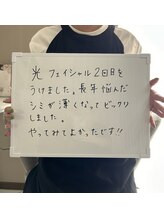 光フェイシャル2回目を
うけました。長年悩んだ
シミが薄くなってビックリ
しました。
やってみてよかったです!!